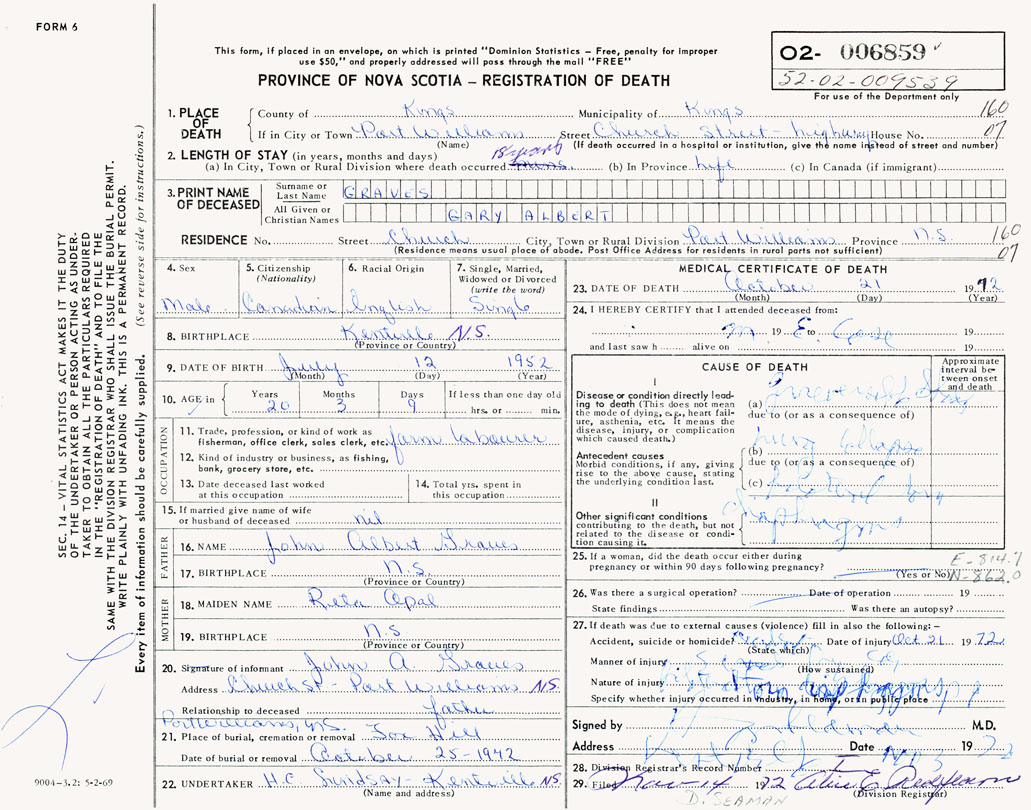 FORM 6
This form, if placed in an envelope, on which is printed "Dominion Statistics – Free, penalty for improper
use $50," and properly addressed will pass through the mail "FREE"
PROVINCE OF NOVA SCOTIA – REGISTRATION OF DEATH
02- 006859
52-02-009539
For use of the Department only
1. PLACE OF DEATH
County of Kings Municipality of Kings 160
If in City or Town Port Williams Street Church Street - Highbury House No. 07
(Name) (If death occurred in a hospital or institution, give the name instead of street and number)
2. LENGTH OF STAY (in years, months and days) 18 years
(a) In City, Town or Rural Division where death occurred (b) In Province Life (c) In Canada (if immigrant)
3. PRINT NAME OF DECEASED
Surname or Last Name GRAVES
All Given or Christian Names GARY ALBERT
RESIDENCE No. Street Church City, Town or Rural Division Port Williams Province N.S. 160
(Residence means usual place of abode. Post Office Address for residents in rural parts not sufficient) 07
4. Sex Male
5. Citizenship (Nationality) Canadian
6. Racial Origin English
7. Single, Married, Widowed or Divorced (write the word) Single
8. BIRTHPLACE Kentville N.S.
(Province or Country)
9. DATE OF BIRTH July 12 1952
(Month) (Day) (Year)
10. AGE in Years 20 Months 3 Days 9 If less than one day old hrs. or min.
OCCUPATION
11. Trade, profession, or kind of work as
fisherman, office clerk, sales clerk, etc. farm labourer
12. Kind of industry or business, as fishing,
bank, grocery store, etc.
13. Date deceased last worked at this occupation
14. Total yrs. spent in this occupation
15. If married give name of wife
or husband of deceased nil
FATHER
16. NAME John Albert Graves
17. BIRTHPLACE N.S.
(Province or Country)
MOTHER
18. MAIDEN NAME Reta Opal
19. BIRTHPLACE N.S
(Province or Country)
20. Signature of informant John A Graves
Address Church St - Port Williams N.S.
Relationship to deceased father
Port Williams, N.S.
21. Place of burial, cremation or removal Fox Hill
Date of burial or removal October 25-1942
22. UNDERTAKER H.C. Lindsay - Kentville N.S.
(Name and address)
MEDICAL CERTIFICATE OF DEATH
23. DATE OF DEATH October 21 1972
(Month) (Day) (Year)
24. I HEREBY CERTIFY that I attended deceased from:
M. 19 E. to Case 19
and last saw h alive on 19
CAUSE OF DEATH
Approximate interval between onset and death
I
Disease or condition directly leading to death (This does not mean the mode of dying, e.g., heart failure, asthenia, etc. It means the disease, injury, or complication which caused death.)
(a)
due to (or as a consequence of)
Antecedent causes
Morbid conditions, if any, giving rise to the above cause, stating the underlying condition last.
(b) lung collapse
due to (or as a consequence of)
(c)
II
Other significant conditions contributing to the death, but not related to the disease or condition causing it.
25. If a woman, did the death occur either during
pregnancy or within 90 days following pregnancy?
(Yes or No)
E-814.7
N-862.0
26. Was there a surgical operation? Date of operation 19
State findings Was there an autopsy?
27. If death was due to external causes (violence) fill in also the following:–
Accident, suicide or homicide? Date of injury Oct 21 1972
(State which)
Manner of injury
(How sustained)
Nature of injury
Specify whether injury occurred in industry, in home, or in public place
Signed by M.D.
Address Date 19 72
28. Division Registrar's Record Number
29. Filed Nov - 14 1972
(Division Registrar)
D. SEAMAN
SEC. 14 – VITAL STATISTICS ACT MAKES IT THE DUTY
OF THE UNDERTAKER OR PERSON ACTING AS UNDERTAKER TO OBTAIN ALL THE PARTICULARS REQUIRED
IN THE "REGISTRATION OF DEATH" AND TO FILE THE
SAME WITH THE DIVISION REGISTRAR WHO SHALL ISSUE THE BURIAL PERMIT.
WRITE PLAINLY WITH UNFADING INK. THIS IS A PERMANENT RECORD.
Every item of information should be carefully supplied. (See reverse side for instructions.)
9004-3.2: 5-2-69